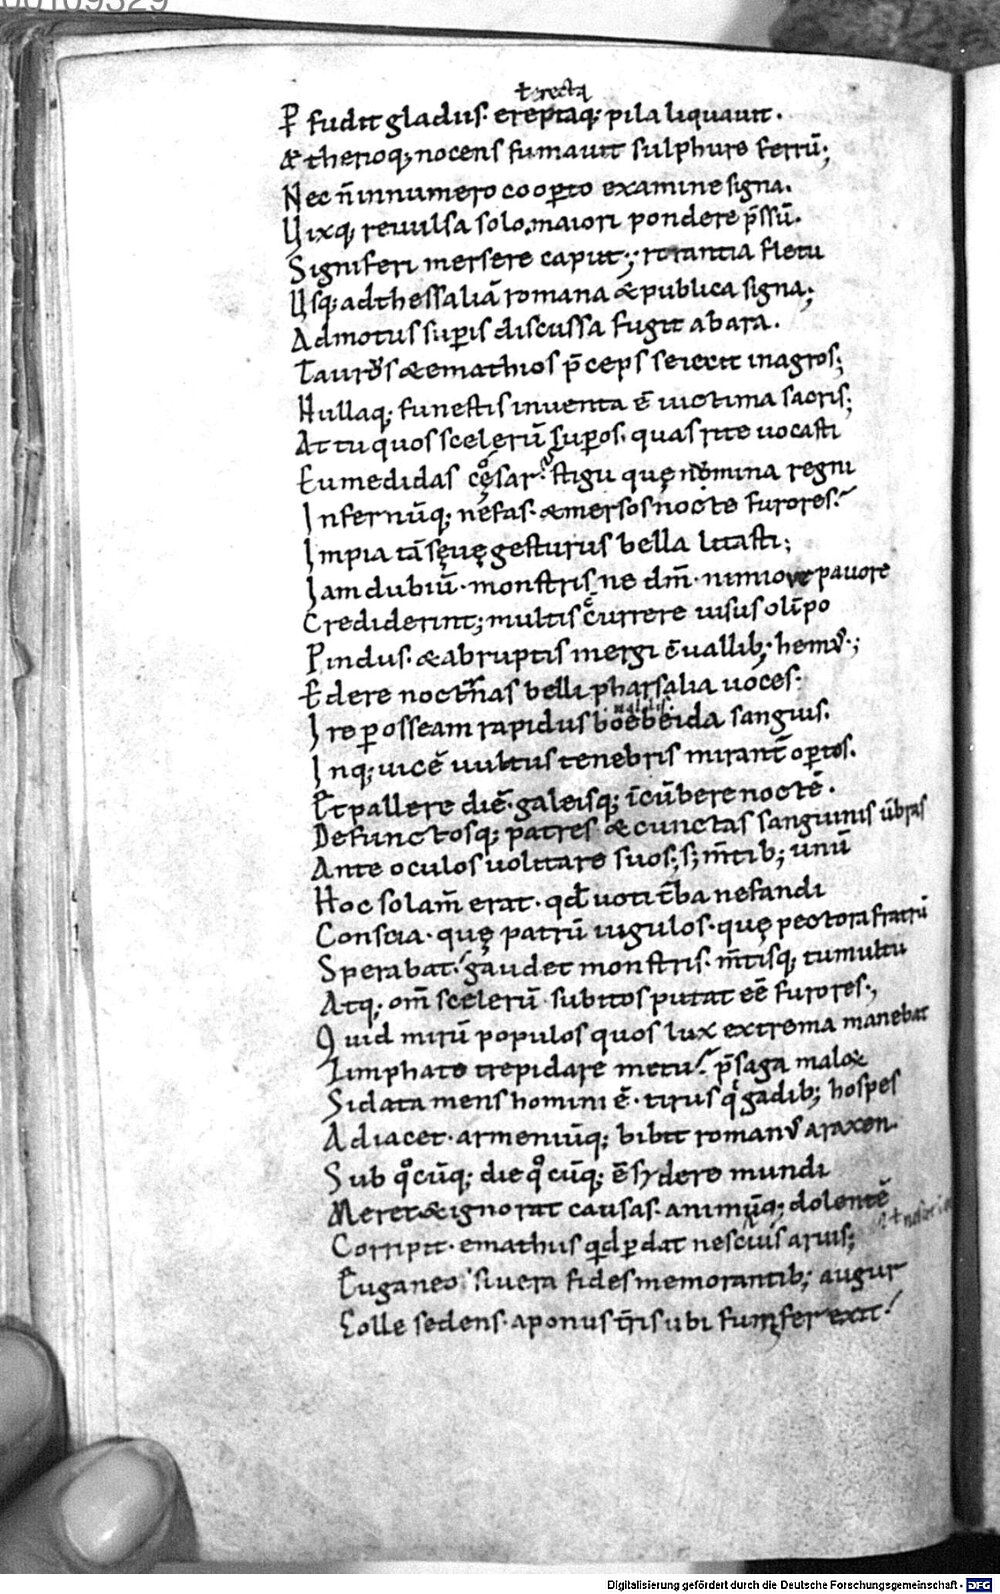 00109329
ł erecta
P̱ fudit gladius· ereptaq; pila liquauit·
Æ therioq; nocens fumauit sulphure ferrū;
Nec ñ innumero cooꝑto examine signa.
Uixq, reuulsa solo. maiori pondere p̄ssū.
Signiferi mersere caput; rorantia fletu
Usq; ad thessaliā romana & publica signa;
Admotus suꝑis discussa fugit ab ara.
Taurus & emathios p̄ceps se iecit in agros;
Nullaq; funestis inuenta ē uictima sacris;
At tu quos scelerū suꝑos. quas rite uocasti
Eumenidas cęsar? stigii quę nomina regni
Infernūq; nefas· & mersos nocte furores?
Impia tā sęuę gesturus bella litasti;
Iam dubiū· monstris ne dm̄· nimio ne pauore
Crediderint; multis c̄currere uisus olīpo
Pindus· & abruptis mergi c̄uallib; hemꝰ;
Edere noct̄nas belli pharsalia uoces·
Ire ꝑ osseam rapidus boebeida sanguis.
Inq; uicē uultus tenebris mirant̄ oꝑtos.
Et pallere diē· galeisq; īcūbere noctē.
Defunctosq; patres & cunctas sanguinis ūbras
Ante oculos uolitare suos; s; m̄tib; unū
Hoc solam̄ erat· qđ uoti t̄ba nefandi
Conscia· quę patrū iugulos· quę pectora fratrū
Sperabat· gaudet monstris· m̄tisq; tumultu
Atq; om̄ scelerū· subitos putat eē furores·,
Quid mirū populos quos lux extrema manebat
Limphato trepidare metu? p̄saga malox
Si data mens homini ē· tirus q gadib; hospes
Adiacet· armeniūq; bibit romanꝰ araxen·
Sub qͦcūq; die qͦcūq; ē sydere mundi
Meret & ignorat causas· animūq; dolentē
Corripit· emathiis qd ꝑdat nescius aruis;
Euganeo si uera fides memorantib; augur
Colle sedens· aponus t̄ris ubi fumifer exit!
Digitalisierung gefördert durch die Deutsche Forschungsgemeinschaft - DFG